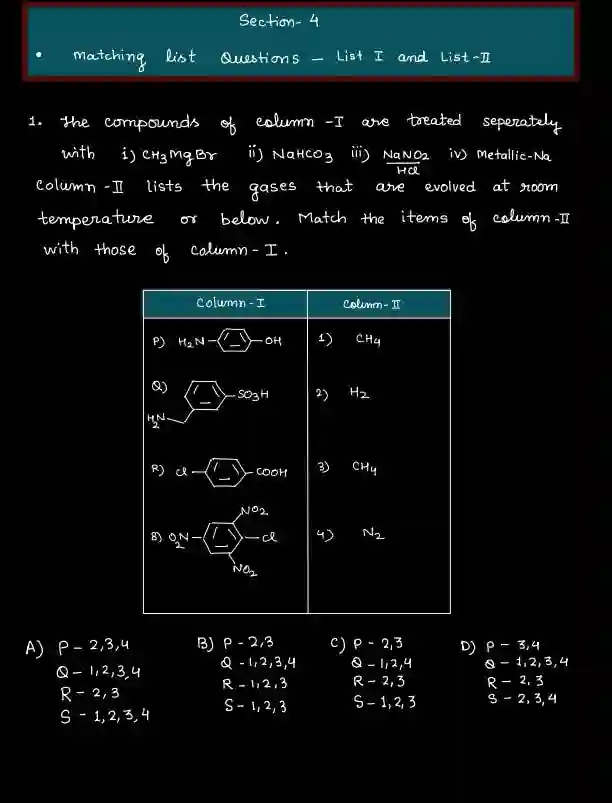 Section- 4
• matching list Questions – List I and List-II
1. The compounds of column -I are treated seperately
with i) CH3MgBr ii) NaHCO3 iii) NaNO2/HCl iv) Metallic-Na
Column -II lists the gases that are evolved at room
temperature or below. Match the items of column-II
with those of column-I.
Column-I Column-II
P) H2N- -OH 1) CH4
Q) H2N -SO3H 2) H2
R) Cl- -COOH 3) CH4
S) O2N- NO2 -Cl NO2 4) N2
A) P-2,3,4 B) P-2,3 C) P-2,3 D) P-3,4
Q-1,2,3,4 Q-1,2,3,4 Q-1,2,4 Q-1,2,3,4
R-2,3 R-1,2,3 R-2,3 R-2,3
S-1,2,3,4 S-1,2,3 S-1,2,3 S-2,3,4